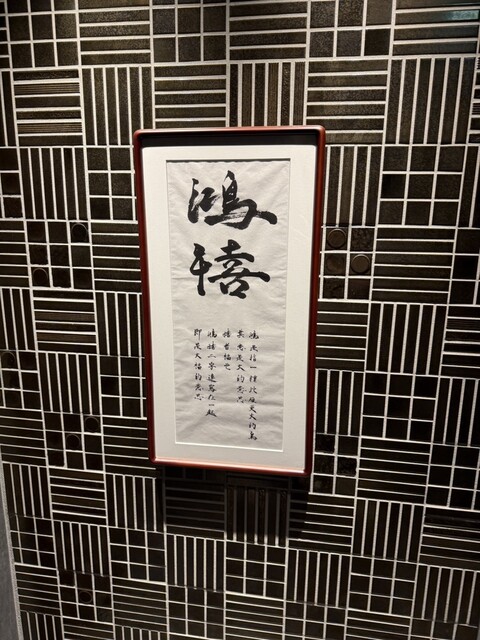 鴻禧
鴻是指一種非常大的鳥
其意是大的意思
禧者福也
鴻禧二字連寫在一起
即是大福的意思